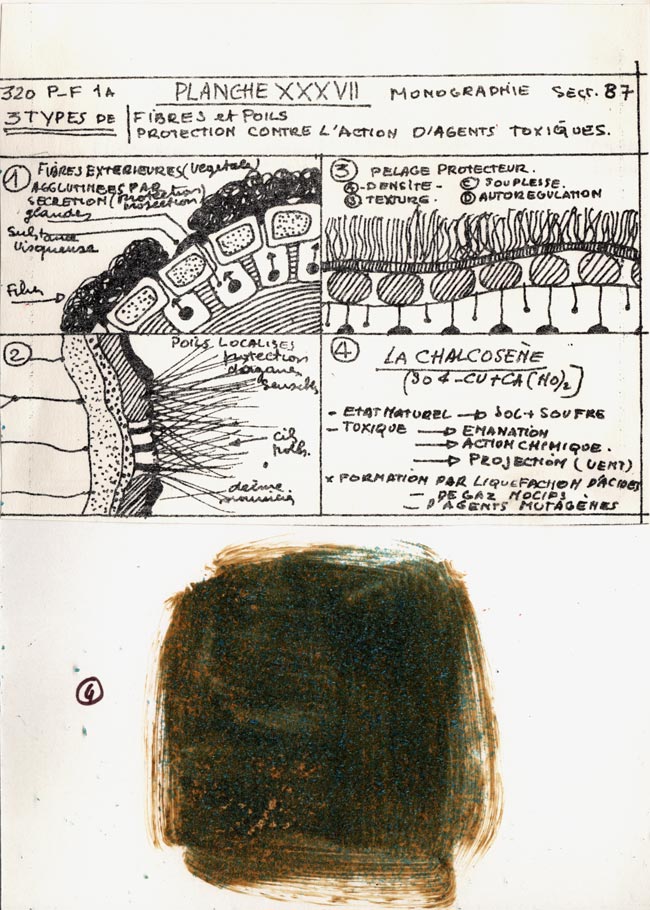 320 P-F 1A PLANCHE XXXVII MONOGRAPHIE SECT. 87
3 TYPES DE FIBRES et POILS
PROTECTION CONTRE L'ACTION D'AGENTS TOXIQUES.
1 FIBRES EXTERIEURES (vegetale)
AGGLUTINEES PAR
SECRETION (protection)
glandes
Substance
visqueuse
Fibres
3 PELAGE PROTECTEUR.
A - DENSITE - C SOUPLESSE.
B TEXTURE. D AUTOREGULATION
2 POILS LOCALISES
protection
d'organes
sensibles
cil
poils.
4 LA CHALCOSENE
(SO4-CU+CA(HO)2)
- ETAT NATUREL → SOL + SOUFRE
- TOXIQUE → EMANATION
→ ACTION CHIMIQUE.
→ PROJECTION (VENT)
x FORMATION PAR LIQUEFACTION D'ACIDES
— DE GAZ NOCIFS
— D'AGENTS MUTAGÈNES
4